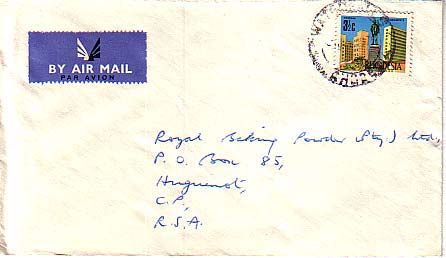 BY AIR MAIL
PAR AVION
3½c
RHODESIA
Royal Baking Powder (Pty.) Ltd,
P. O. Box 85,
Huguenot,
C.P.,
R.S.A.